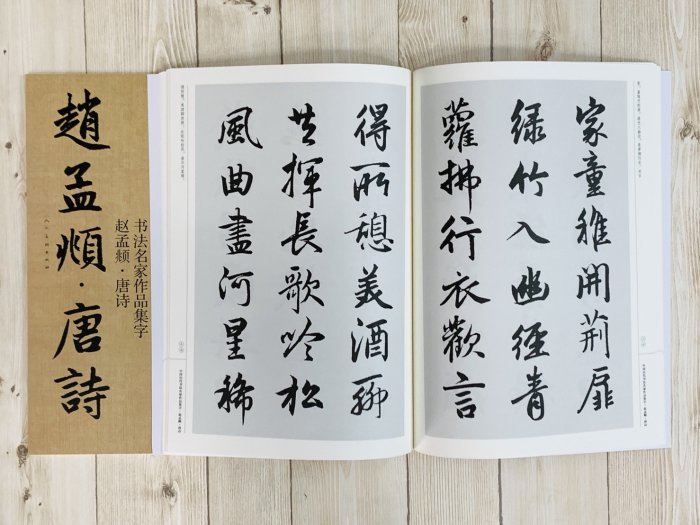 趙孟頫·唐詩
书法名家作品集字
赵孟頫·唐诗
家童稚開荆扉
緑竹入幽徑青
蘿拂行衣歡言
得所憩美酒聊
共揮長歌吟松
風曲盡河星稀